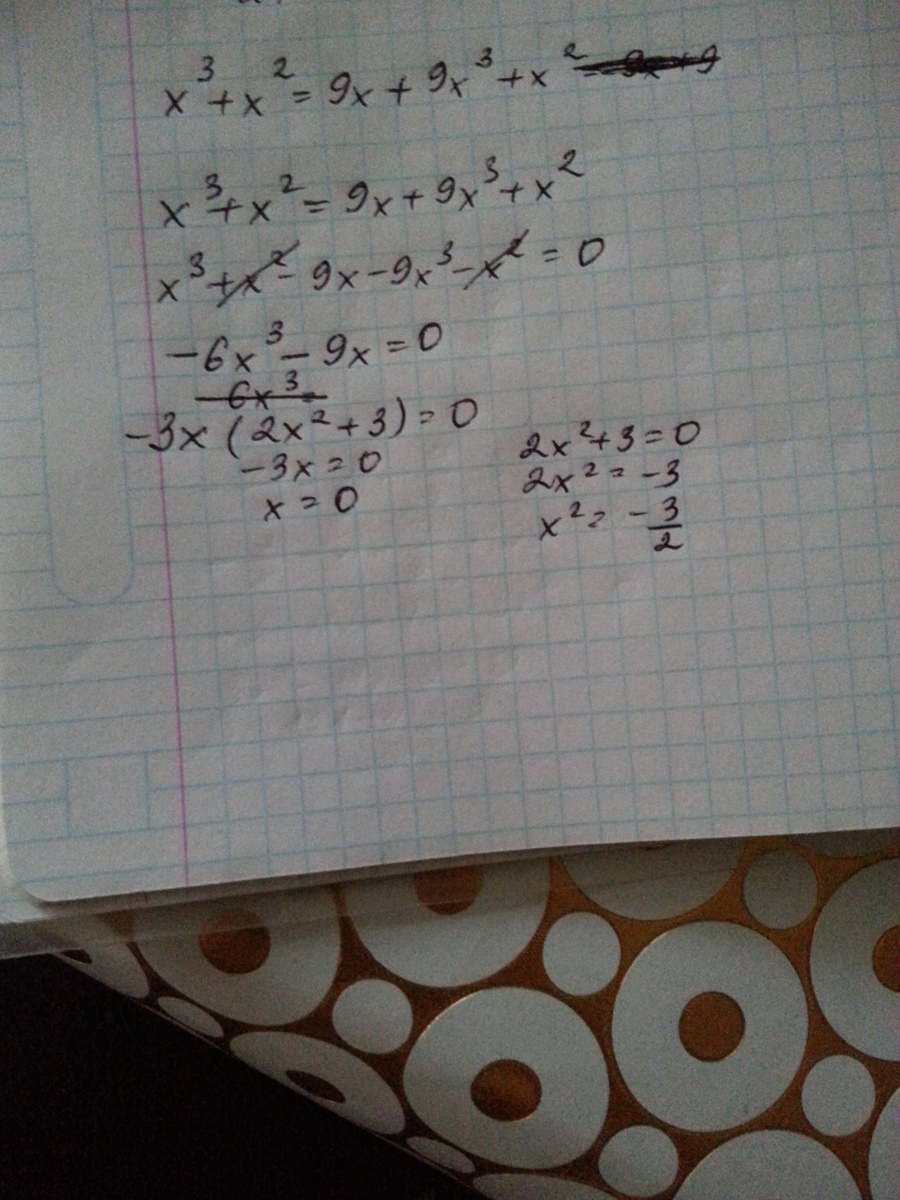 x³+x²=9x+9x³+x² = 9x+9
x³+x²=9x+9x³+x²
x³+x²-9x-9x³-x²=0
-6x³-9x=0
-6x³=
-3x(2x²+3)=0
-3x=0
x=0
2x²+3=0
2x²=-3
x²=-3/2